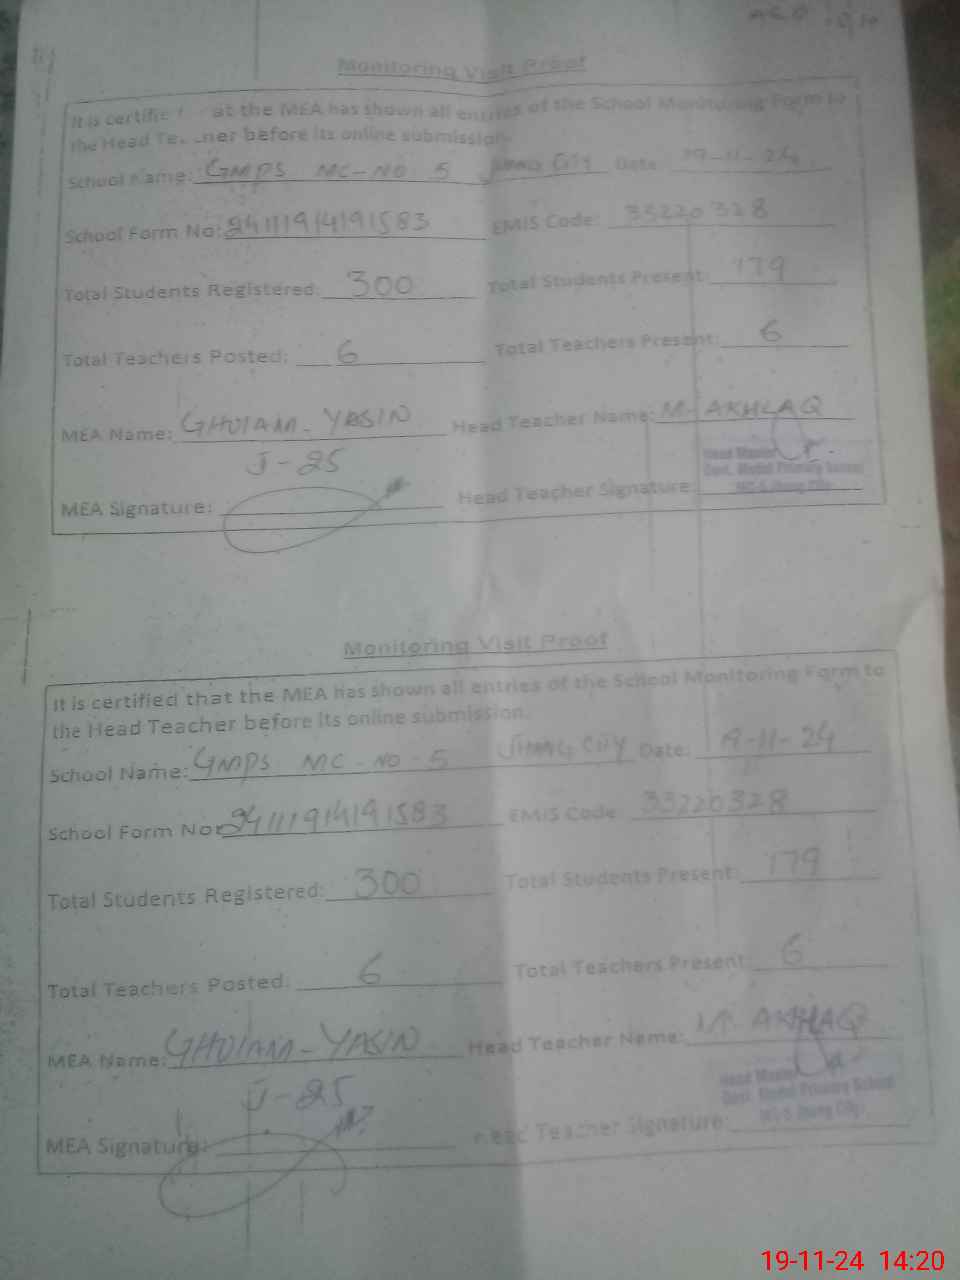 Monitoring Visit Proof
It is certified at the MEA has shown all entries of the School Monitoring Form to
the Head Teacher before its online submission.
School Name: GMPS MC-NO 5 JHANG CITY Date 19-11-24
School Form No: 24111914191583 EMIS Code: 33220328
Total Students Registered: 300 Total Students Present: 179
Total Teachers Posted: 6 Total Teachers Present: 6
MEA Name: GHULAM-YASIN Head Teacher Name: M-AKHLAQ
J-25
Head Master
Govt. Model Primary School
MC-5 Jhang City
MEA Signature: Head Teacher Signature:
Monitoring Visit Proof
It is certified that the MEA has shown all entries of the School Monitoring Form to
the Head Teacher before its online submission.
School Name: GMPS MC-NO-5 JHANG CITY Date: 19-11-24
School Form No: 24111914191583 EMIS Code 33220328
Total Students Registered: 300 Total Students Present: 179
Total Teachers Posted: 6 Total Teachers Present 6
MEA Name: GHULAM-YASIN Head Teacher Name: M-AKHLAQ
J-25
Head Master
Govt. Model Primary School
MC-5 Jhang City
MEA Signature: Head Teacher Signature:
19-11-24 14:20